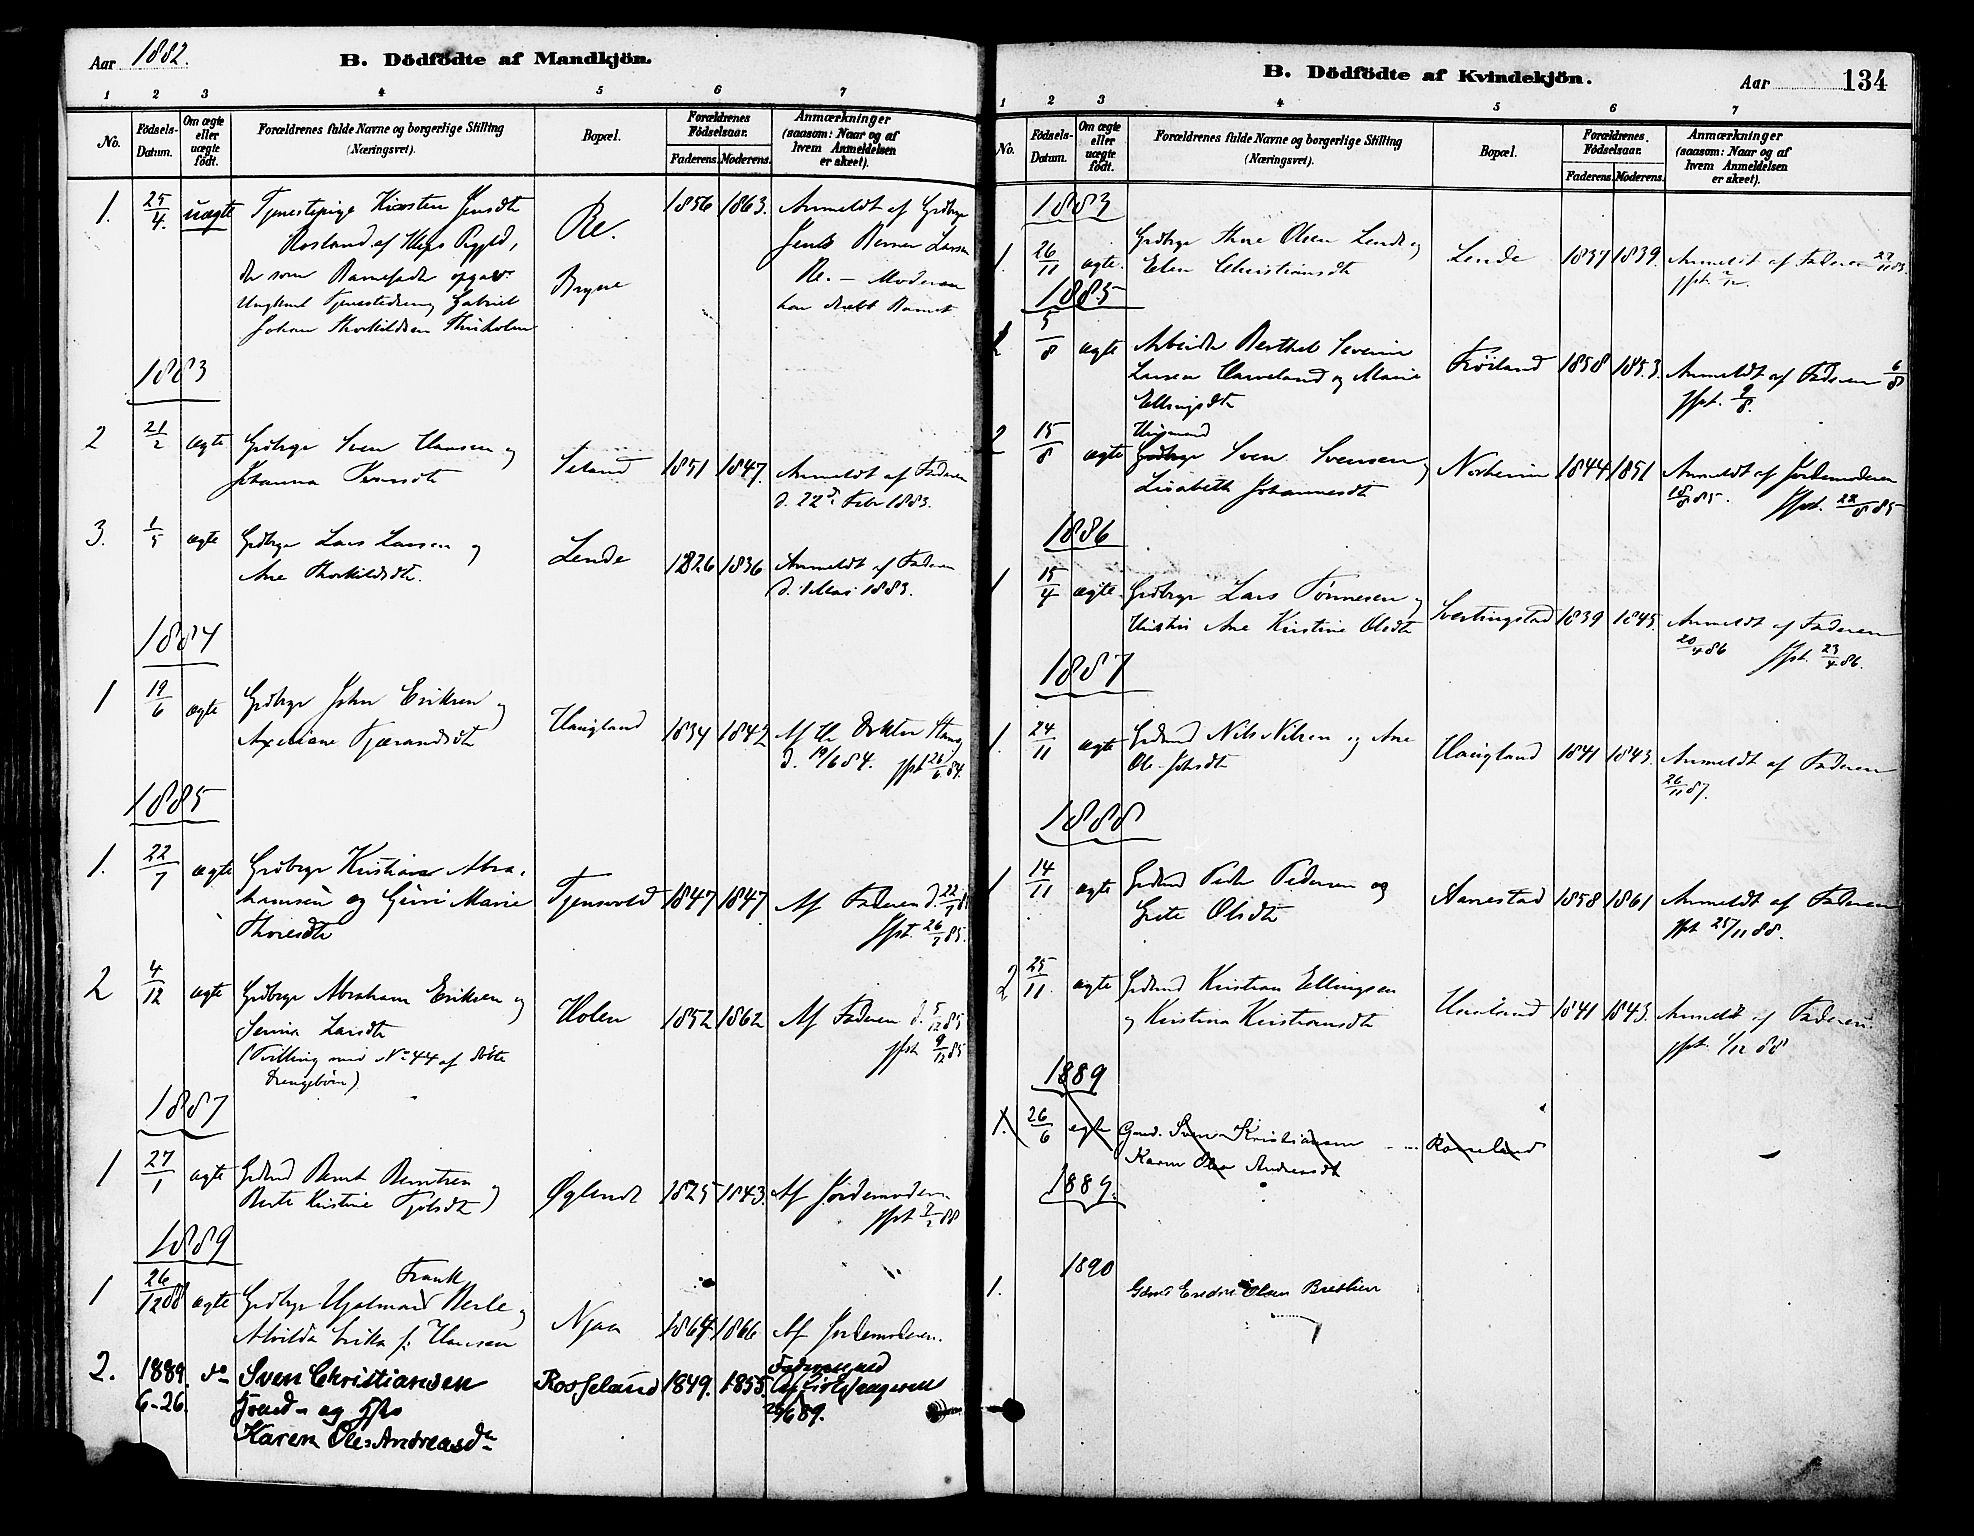 Aar 1882.
B. Dödfödte af Mandkjön.
1 2 3 4 5 6 7
No.
Födsels-Datum.
Om ægte eller uægte födt.
Forældrenes fulde Navne og borgerlige Stilling
(Næringsvei).
Bopæl.
Forældrenes Födselsaar.
Faderens. Moderens.
Anmærkninger
(saasom: Naar og af
hvem Anmeldelsen
er skeet).
1. 25/4. uægte Tjenestepige Kirsten Jensdt Re. 1856 1863. Anmeldt af Grdbrge
Rosland af
Jens Larsen
der som Barnefader opgav Re. – Moderen
Ungkarl Gabriel Bryne
har Barnet
Johan Thorkildsen
1883
2 21/2 ægte Grdbrge Sven Hansen og Seland 1851 1847. Anmeldt af Faderen
Johanna d. 22d Febr 1883.
3. 1/5 ægte Grdbrge Lars Larsen og Lende 1826 1836 Anmeldt af Faderen
Ane Thorkildsdt. d. 1 Mai 1883.
1884
1 19/6 ægte Grdbrge John Eriksen og Haugland 1834 1842 Af Hr Doktor
Axeliane Tjærandsdt d. 19/6 84. 26/6 84.
1885
1. 22/7 ægte Grdbrge Kristian Abra-
hamsen og Guri Marie Tjensvold 1847 1847 Af Faderen d. 22/7 85
Thoresdt 26/7 85.
2 4/12 ægte Grdbrge Abraham Eriksen og Holen 1852 1862 Af Faderen d. 5/12 85
Larsdt 9/12 85
(Tvilling med No 44 af fødte
Drengebørn)
1887
1 27/1 ægte Grdmd Bernt Berntsen og Øglend 1825 1843. Af Jordemoderen
Berte Kristine
1889
Frank
1 26/12 88 ægte Grdbrge Hjalmar Berle og Njaa 1864 1866 Af Jordemoderen.
Alvilda Erika f. Hansen
2. 1889. do Sven Christiansen Rosseland 1849. 1855.
6-26. Grmd- og Hst
26/6 89.
Karen Ole-Andreasdr
B. Dödfödte af Kvindekjön.
Aar
134
1 2 3 4 5 6 7
No.
Födsels-Datum.
Om ægte eller uægte födt.
Forældrenes fulde Navne og borgerlige Stilling
(Næringsvei).
Bopæl.
Forældrenes Födselsaar.
Faderens. Moderens.
Anmærkninger
(saasom: Naar og af
hvem Anmeldelsen
er skeet).
1883
1. 26/11 ægte. Grdbrge Thore Olsen Lende og Lende 1837 1839. Anmeldt af Faderen 27/11 83.
Elen Christiansdt
1885
1 5/8 ægte Arbeider Berthel Severin Frøiland 1858 1853. Anmeldt af Faderen 6/8
Larsen Haveland og Marie 9/8.
Ellingsdt
Husmand
2 15/8 ægte Grdbrge Sven Svensen og Norheim 1844 1851 Anmeldt af Jordemoderen
Lisabeth Johannesdt 18/8 85. 22/8 85
1886
1 15/4 ægte Grdbrge Lars Tønnesen og Svertingstad 1839 1845. Anmeldt af Faderen
Hustru Ane Kirstine Olsdt 20/4 86 23/4 86.
1887
1. 24/11 ægte Grdmd Nils Nilsen og Ane Haugland 1841 1843. Anmeldt af Faderen
26/11 87.
1888
1 14/11 ægte Grdmd Peder Pedersen og Aarrestad 1858 1861 Anmeldt af Faderen
Grete Olsdt 25/11 88.
2 25/11. ægte Grdmd Kristian Ellingsen 1841 1843. Anmeldt af Faderen
og Kristina Kristiansdt 1/12 88
1889
1. 26/6 egte Gmd. Sven Kristiansen Rosseland
Karen Ole Andreasdt
1889.
1890
1. Gdmd Endre Olsen Brekken